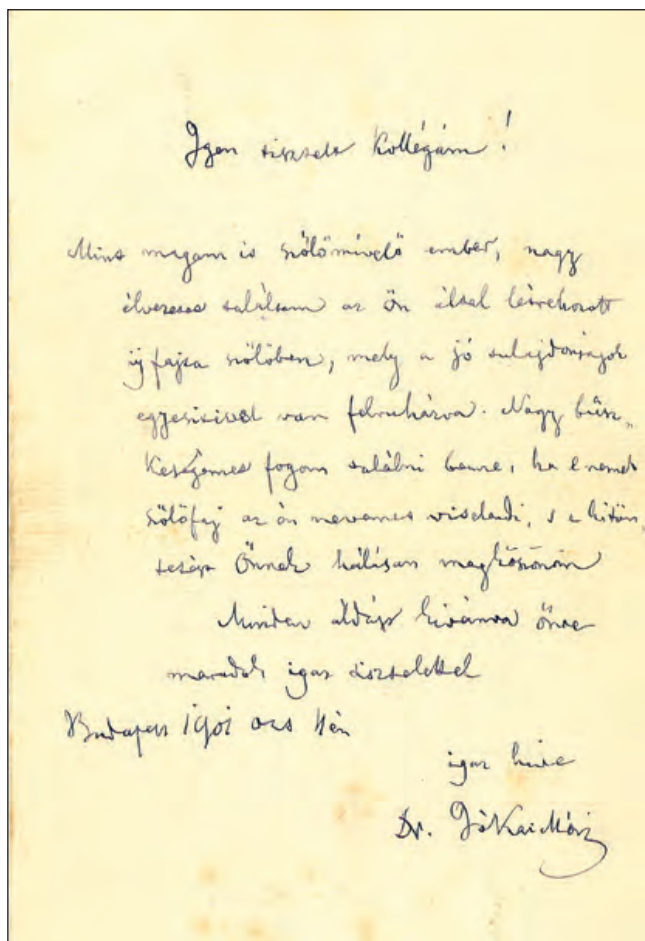 Igen tisztelt Kollégám!
Mint magam is szőlőmívelő ember, nagy
élvezetet találtam az Ön által létrehozott
új fajta szőlőben, mely a jó tulajdonságok
egyesítésével van felruházva. Nagy büsz„
keségemet fogom találni benne, ha e nemes
szőlőfaj az én nevemet viselendi, s e kitün„
tetést Önnek hálásan megköszönöm
Minden áldást kívánva Önre
maradok igaz tisztelettel
Budapest 1901
igaz híve
Dr. Jókai Mór